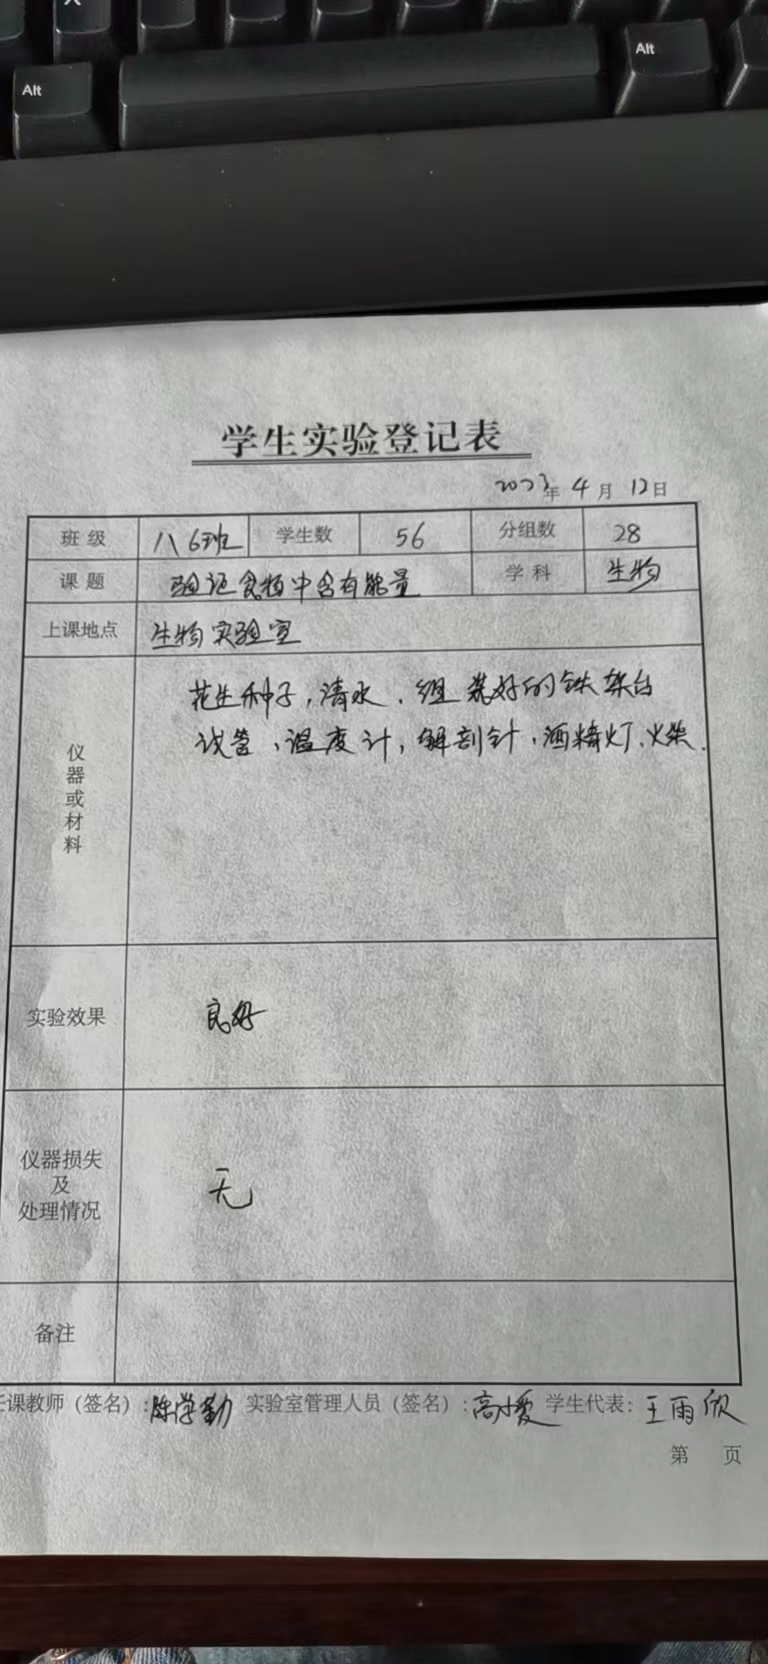 Alt
Alt
学生实验登记表
2023年 4月 12日
班级 八6班 学生数 56 分组数 28
课题 验证食物中含有能量 学科 生物
上课地点 生物实验室
仪器或材料
花生种子,清水、组装好的铁架台
试管、温度计,解剖针、酒精灯、火柴.
实验效果 良好
仪器损失
及
处理情况
无
备注
任课教师(签名):陈学勤 实验室管理人员(签名):高小爱 学生代表:王雨欣
第 页